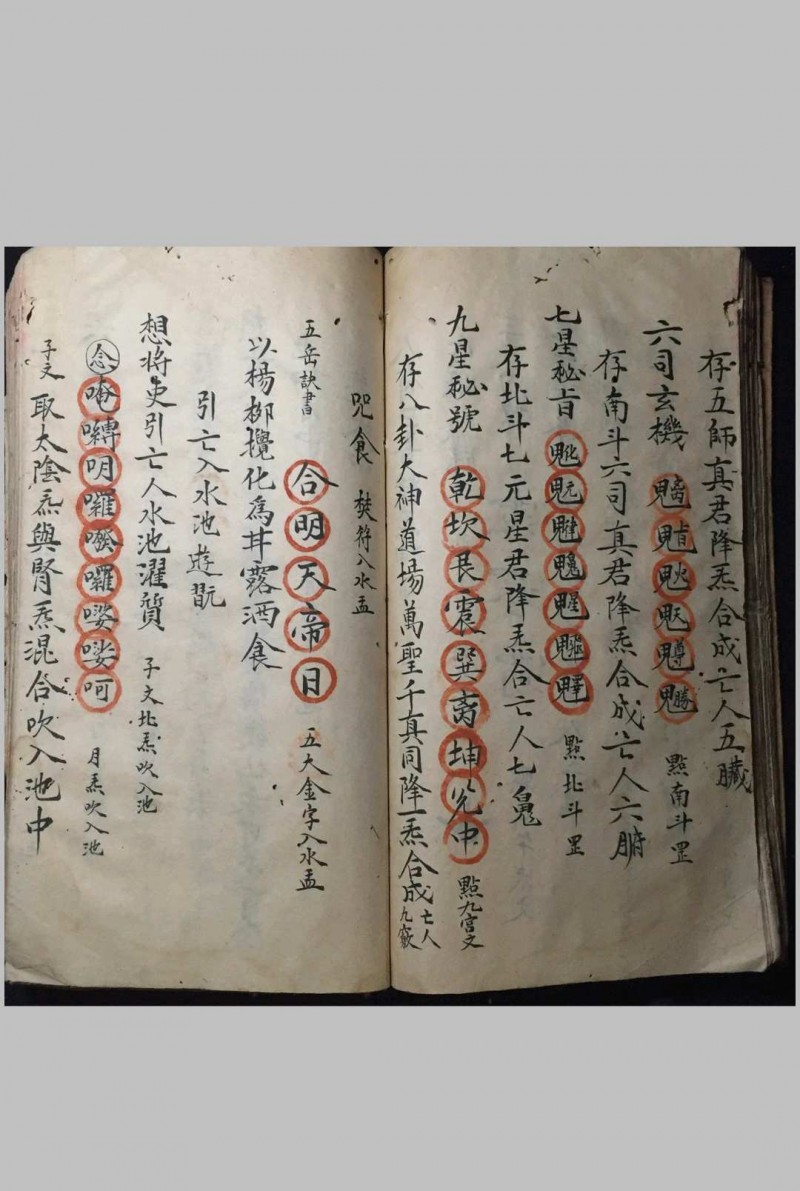 存五師真君降炁合成亡人五臟
六司玄機 點南斗罡
存南斗六司真君降炁合成亡人六腑
七星秘旨 點北斗罡
存北斗七元星君降炁合亡人七
九星秘號 乾坎艮震巽离坤兊中 點九宮文
存八卦大神道場萬聖千真同降一炁合成亡人九竅
咒食 焚符入水盂
五岳訣書 合明天帝日 五大金字入水盂
以楊柳攪化為甘露酒食
引亡入水池遊翫
想將吏引亡人水池濯質 子文北炁吹入池
念 唵嚩囉囉呵 月炁吹入池
子文 取太陰炁與腎炁混合吹入池中